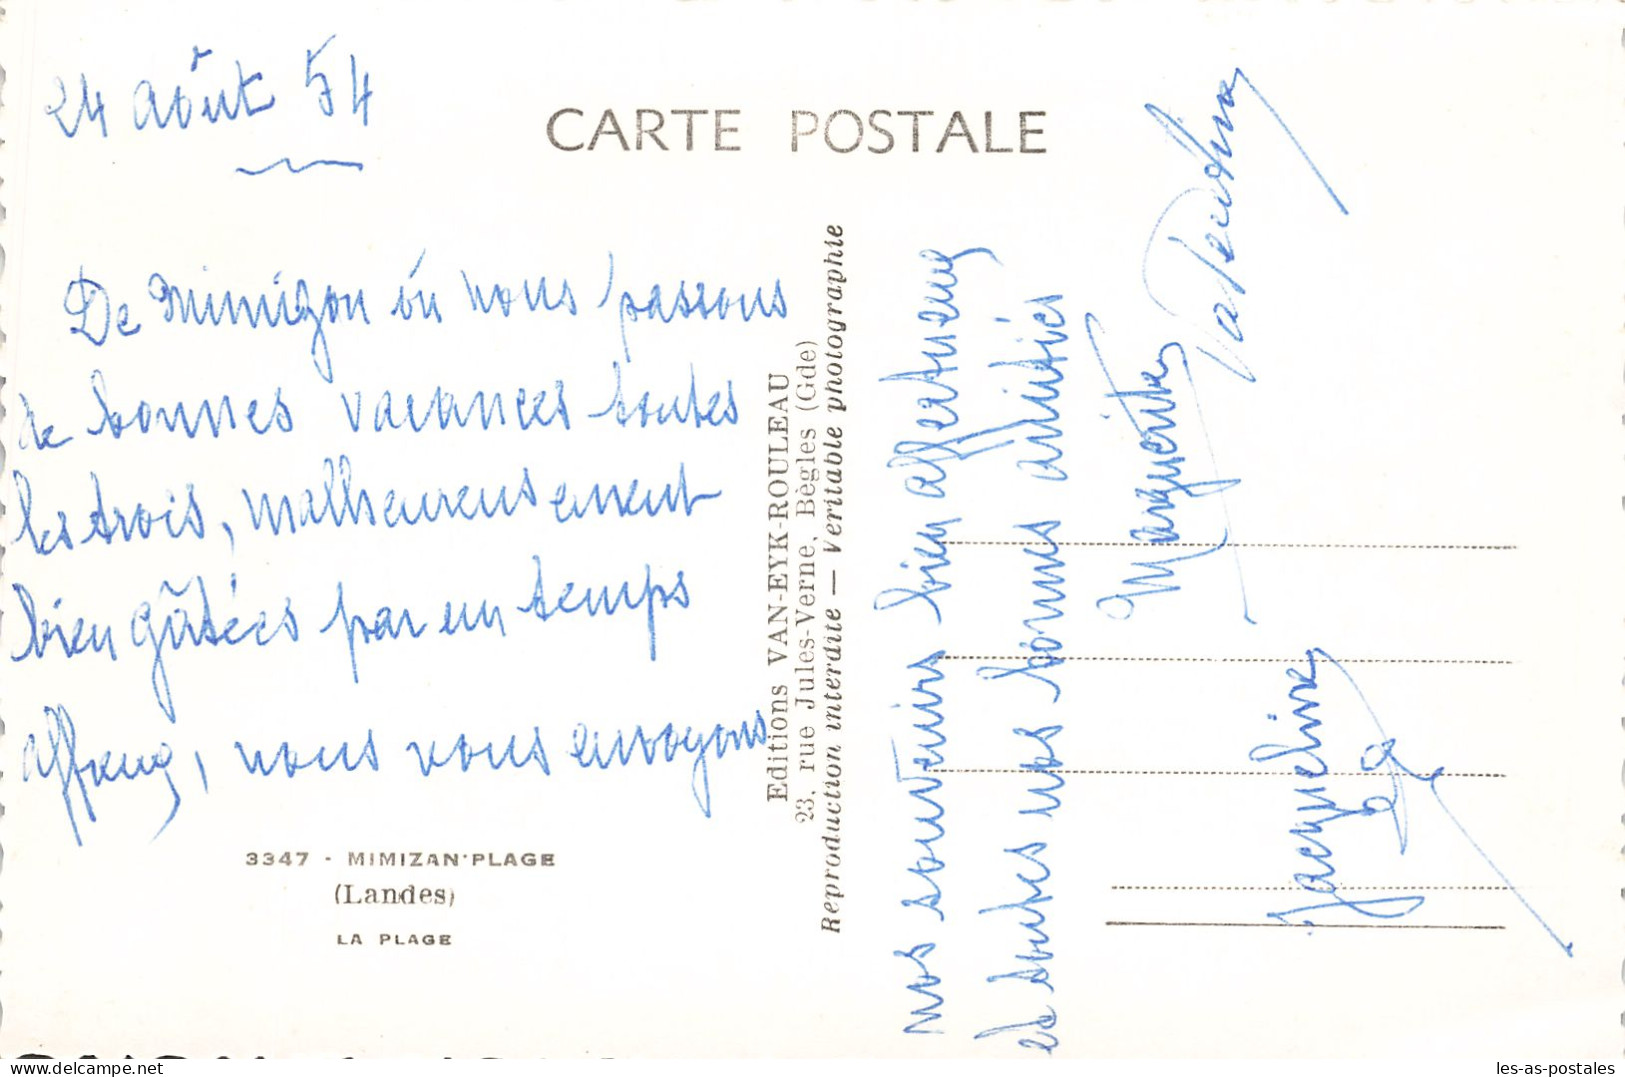 24 Août 54
CARTE POSTALE
De Mimizan où nous passons
de bonnes vacances toutes
les trois, malheureusement
bien gâtées par un temps
affreux, nous vous envoyons
3347 - MIMIZAN-PLAGE
(Landes)
LA PLAGE
Editions VAN-EYK-ROULEAU
23, rue Jules-Verne, Bègles (Gde)
Reproduction interdite — Véritable photographie
nos souvenirs bien affectueux
et toutes nos bonnes amitiés
Marguerite
Jacqueline
les-as-postales